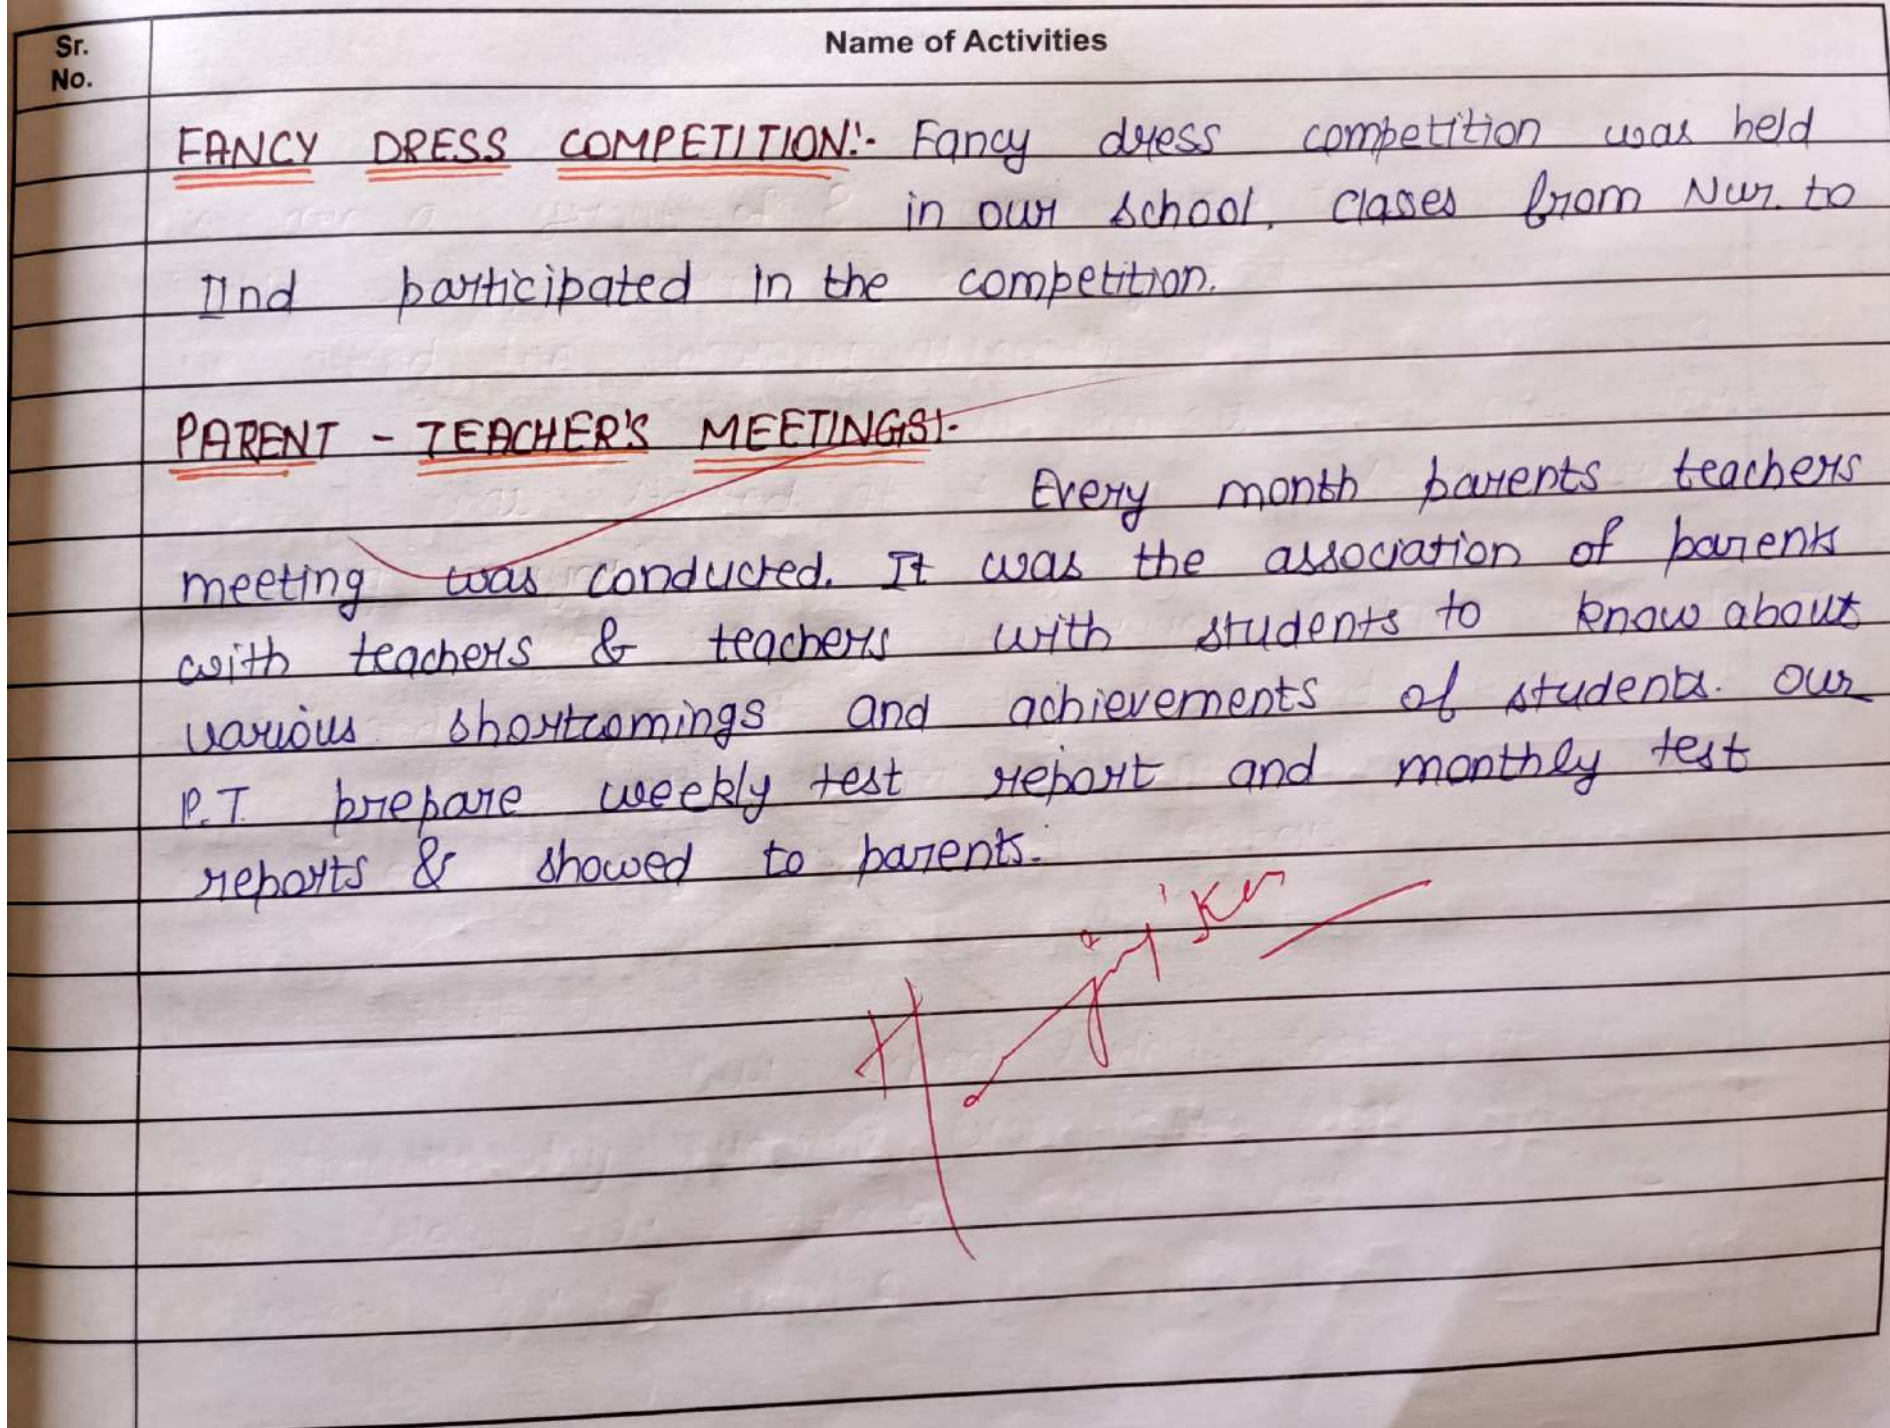 Sr.
No.
Name of Activities
FANCY DRESS COMPETITION:- Fancy dress competition was held
in our school, clases from Nur. to
IInd participated in the competition.
PARENT - TEACHER'S MEETINGS:-
Every month parents teachers
meeting was conducted. It was the association of parents
with teachers & teachers with students to know about
various shortcomings and achievements of students. Our
P.T. prepare weekly test report and monthly test
reports & showed to parents.